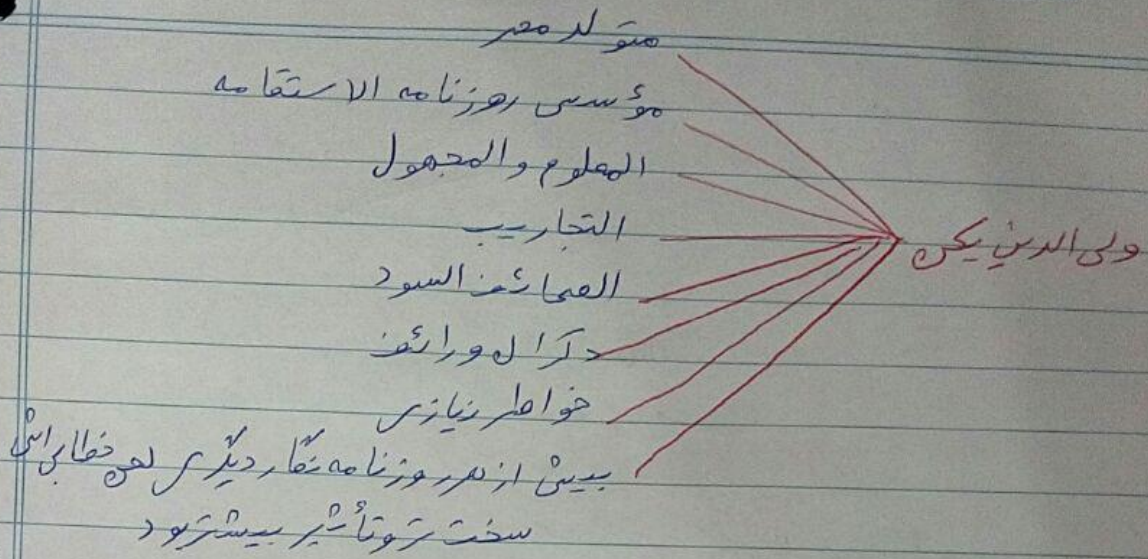 ولی الدین یکن
متولد مصر
مؤسس روزنامه الاستقامه
المعلوم والمجهول
التجاریب
الصحائف السود
دکرال ورائف
خواطر نیازی
بیش از هر روزنامه نگار دیگری لحن خطابی اش
سخت تر و تأثیر بیشتر بود